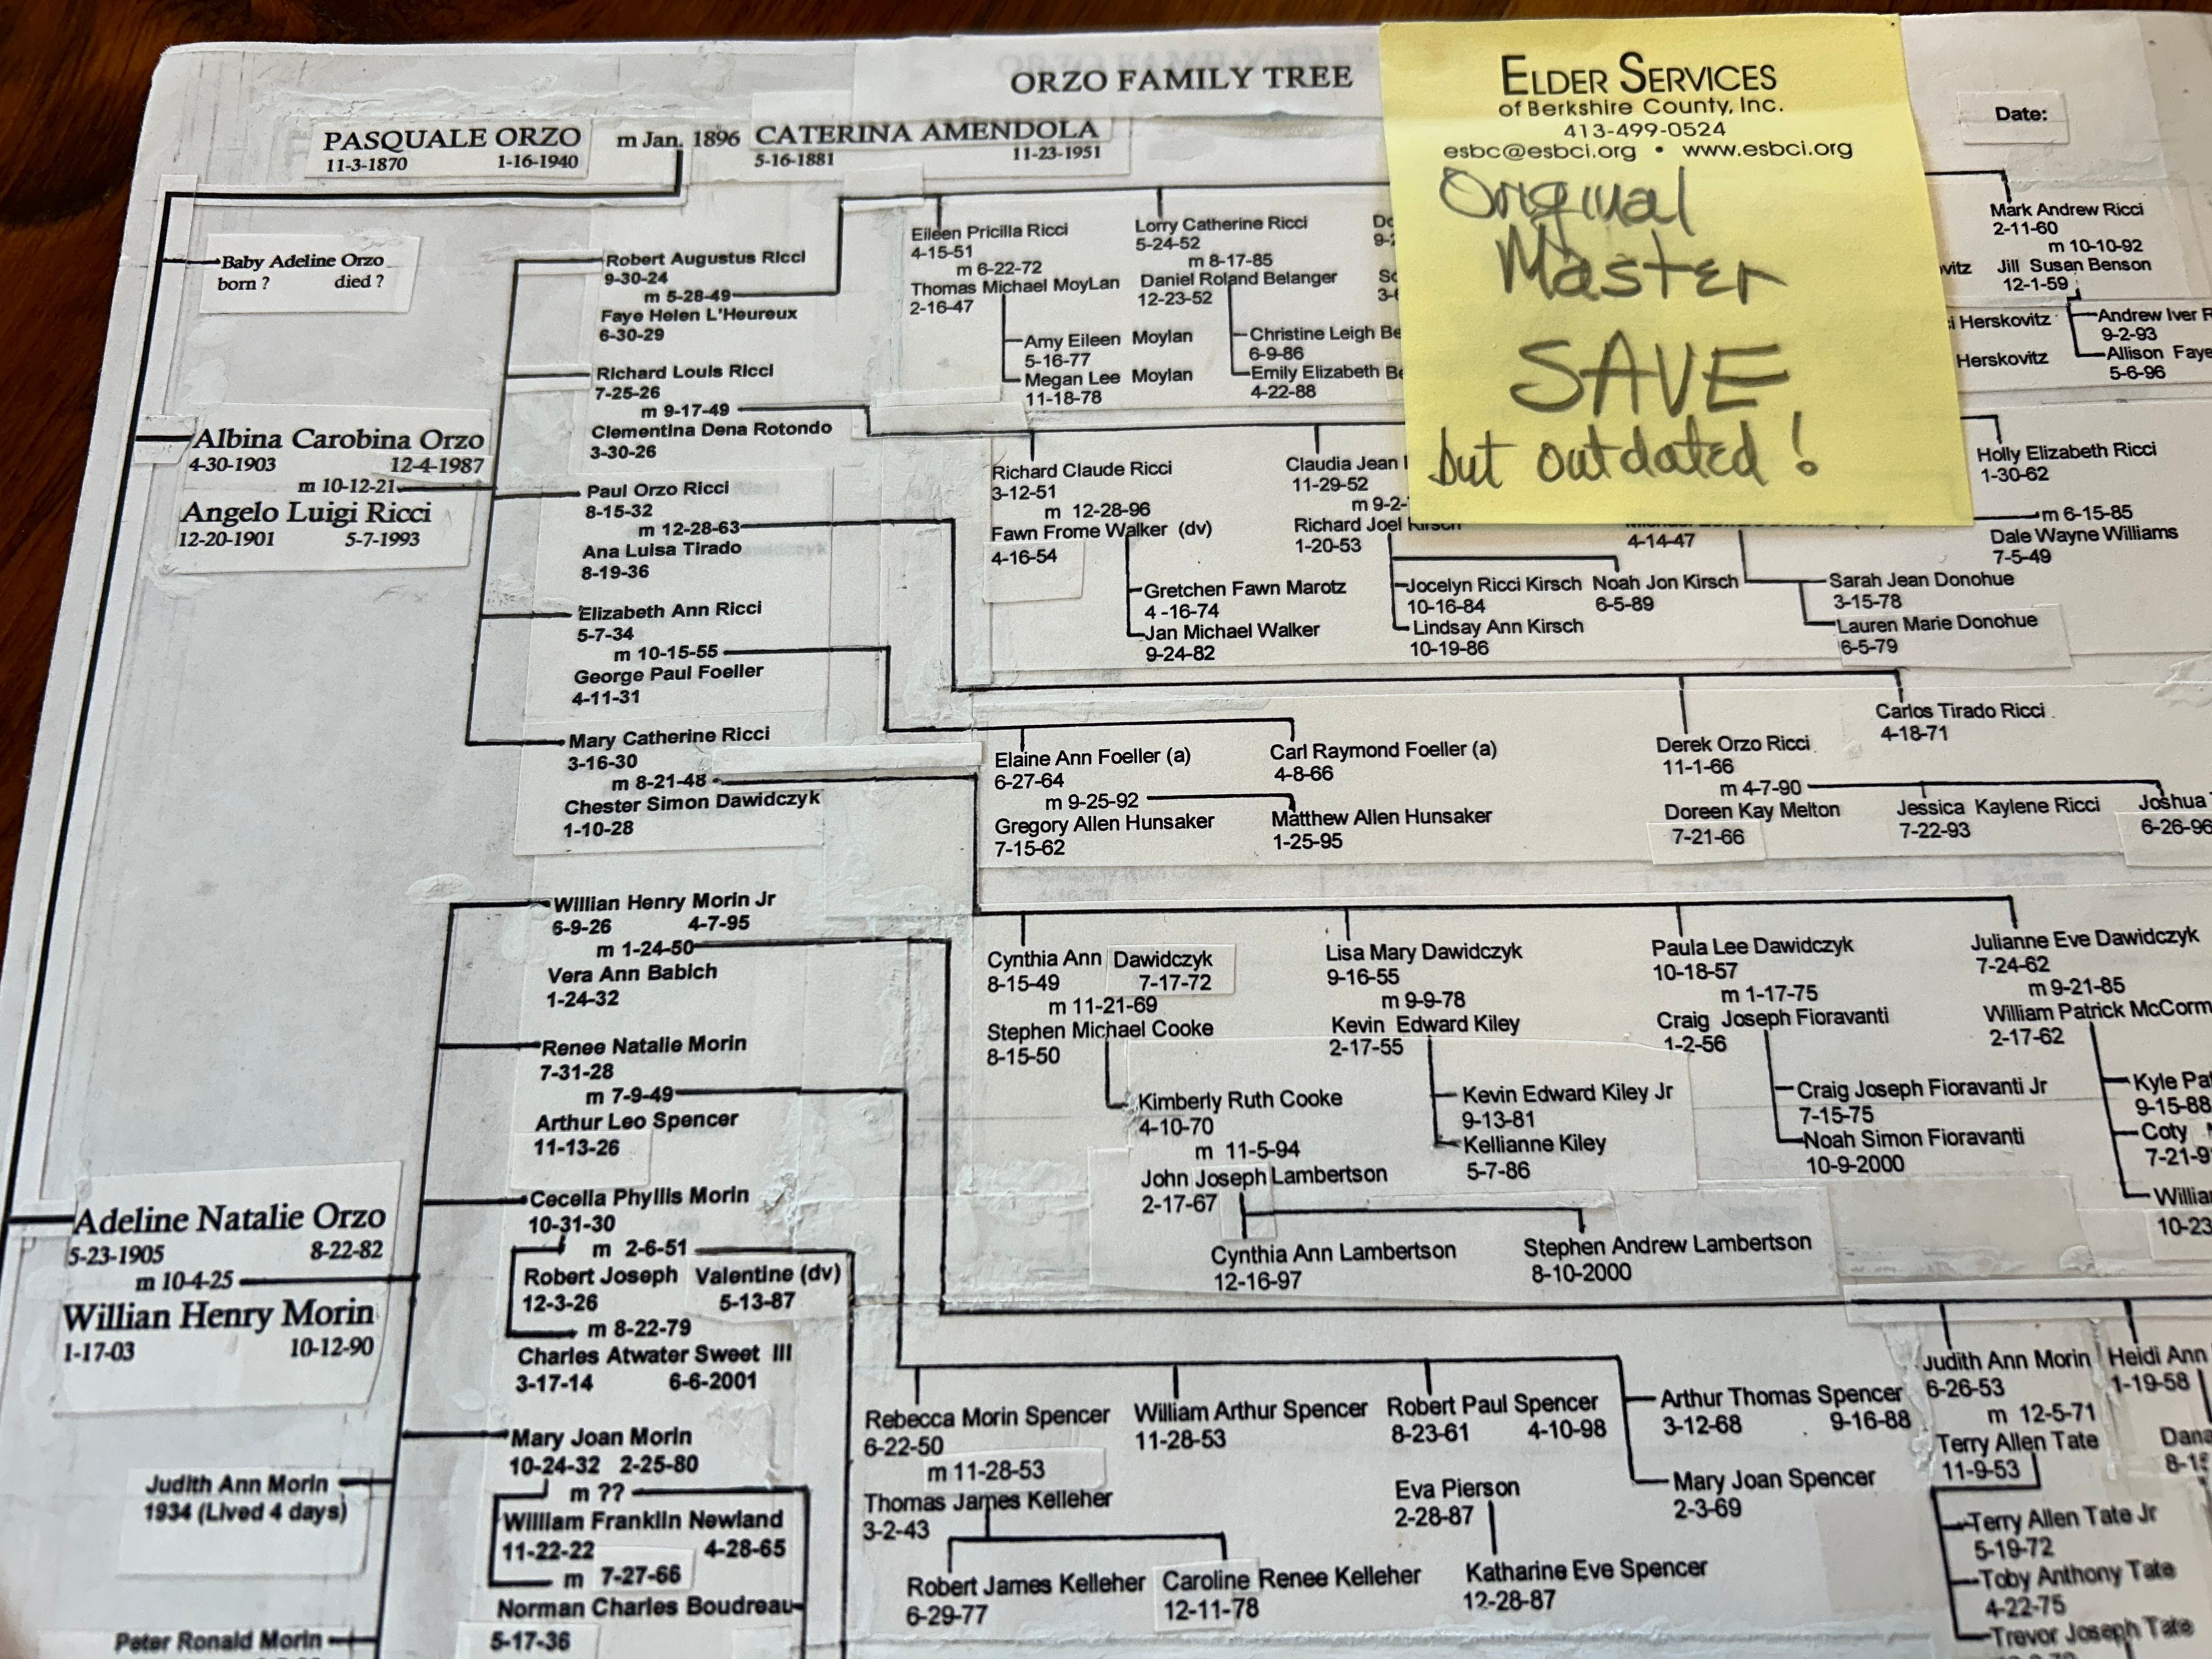 ORZO FAMILY TREE
ELDER SERVICES
of Berkshire County, Inc.
413-499-0524
esbc@esbci.org • www.esbci.org
Original
Master
SAVE
but outdated!
Date:
PASQUALE ORZO m Jan. 1896 CATERINA AMENDOLA
11-3-1870 1-16-1940 5-16-1881 11-23-1951
Baby Adeline Orzo
born ? died ?
Albina Carobina Orzo
4-30-1903 12-4-1987
m 10-12-21
Angelo Luigi Ricci
12-20-1901 5-7-1993
Robert Augustus Ricci
9-30-24
m 5-28-49
Faye Helen L'Heureux
6-30-29
Richard Louis Ricci
7-25-26
m 9-17-49
Clementina Dena Rotondo
3-30-26
Paul Orzo Ricci
8-15-32
m 12-28-63
Ana Luisa Tirado
8-19-36
Elizabeth Ann Ricci
5-7-34
m 10-15-55
George Paul Foeller
4-11-31
Mary Catherine Ricci
3-16-30
m 8-21-48
Chester Simon Dawidczyk
1-10-28
Eileen Pricilla Ricci
4-15-51
m 6-22-72
Thomas Michael MoyLan
2-16-47
Amy Eileen Moylan
5-16-77
Megan Lee Moylan
11-18-78
Lorry Catherine Ricci
5-24-52
m 8-17-85
Daniel Roland Belanger
12-23-52
Christine Leigh Be
6-9-86
Emily Elizabeth Be
4-22-88
Mark Andrew Ricci
2-11-60
m 10-10-92
Jill Susan Benson
12-1-59
vitz
Herskovitz
Herskovitz
Andrew Iver R
9-2-93
Allison Faye
5-6-96
Richard Claude Ricci
3-12-51
m 12-28-96
Fawn Frome Walker (dv)
4-16-54
Gretchen Fawn Marotz
4 -16-74
Jan Michael Walker
9-24-82
Claudia Jean
11-29-52
m 9-2-
Richard Joel Kirsch
1-20-53
Jocelyn Ricci Kirsch
10-16-84
Lindsay Ann Kirsch
10-19-86
Noah Jon Kirsch
6-5-89
4-14-47
Sarah Jean Donohue
3-15-78
Lauren Marie Donohue
6-5-79
Holly Elizabeth Ricci
1-30-62
m 6-15-85
Dale Wayne Williams
7-5-49
Elaine Ann Foeller (a)
6-27-64
m 9-25-92
Gregory Allen Hunsaker
7-15-62
Carl Raymond Foeller (a)
4-8-66
Matthew Allen Hunsaker
1-25-95
Derek Orzo Ricci
11-1-66
m 4-7-90
Doreen Kay Melton
7-21-66
Carlos Tirado Ricci
4-18-71
Jessica Kaylene Ricci
7-22-93
Joshua
6-26-96
Cynthia Ann Dawidczyk
8-15-49 7-17-72
m 11-21-69
Stephen Michael Cooke
8-15-50
Kimberly Ruth Cooke
4-10-70
m 11-5-94
John Joseph Lambertson
2-17-67
Cynthia Ann Lambertson
12-16-97
Stephen Andrew Lambertson
8-10-2000
Lisa Mary Dawidczyk
9-16-55
m 9-9-78
Kevin Edward Kiley
2-17-55
Kevin Edward Kiley Jr
9-13-81
Kellianne Kiley
5-7-86
Paula Lee Dawidczyk
10-18-57
m 1-17-75
Craig Joseph Fioravanti
1-2-56
Craig Joseph Fioravanti Jr
7-15-75
Noah Simon Fioravanti
10-9-2000
Julianne Eve Dawidczyk
7-24-62
m 9-21-85
William Patrick McCorm
2-17-62
Kyle Pat
9-15-88
Coty
7-21-9
Willia
10-23
Adeline Natalie Orzo
5-23-1905 8-22-82
m 10-4-25
Willian Henry Morin
1-17-03 10-12-90
Judith Ann Morin
1934 (Lived 4 days)
Peter Ronald Morin
Willian Henry Morin Jr
6-9-26 4-7-95
m 1-24-50
Vera Ann Babich
1-24-32
Renee Natalie Morin
7-31-28
m 7-9-49
Arthur Leo Spencer
11-13-26
Cecelia Phyllis Morin
10-31-30
m 2-6-51
Robert Joseph Valentine (dv)
12-3-26 5-13-87
m 8-22-79
Charles Atwater Sweet III
3-17-14 6-6-2001
Mary Joan Morin
10-24-32 2-25-80
m ??
William Franklin Newland
11-22-22 4-28-65
m 7-27-66
Norman Charles Boudreau
5-17-36
Rebecca Morin Spencer
6-22-50
m 11-28-53
Thomas James Kelleher
3-2-43
Robert James Kelleher
6-29-77
Caroline Renee Kelleher
12-11-78
William Arthur Spencer
11-28-53
Robert Paul Spencer
8-23-61 4-10-98
Eva Pierson
2-28-87
Katharine Eve Spencer
12-28-87
Arthur Thomas Spencer
3-12-68 9-16-88
Mary Joan Spencer
2-3-69
Judith Ann Morin
6-26-53
m 12-5-71
Terry Allen Tate
11-9-53
Terry Allen Tate Jr
5-19-72
Toby Anthony Tate
4-22-75
Trevor Joseph Tate
Heidi Ann
1-19-58
Dana